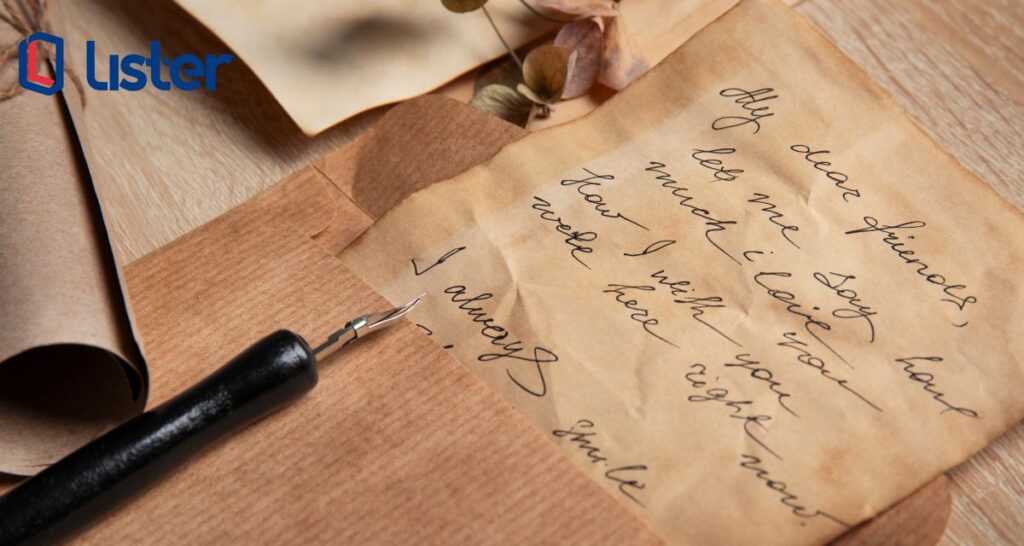 Lister
My dear friends,
let me say how
much i love you
How I wish you
were here right now.
I always smile